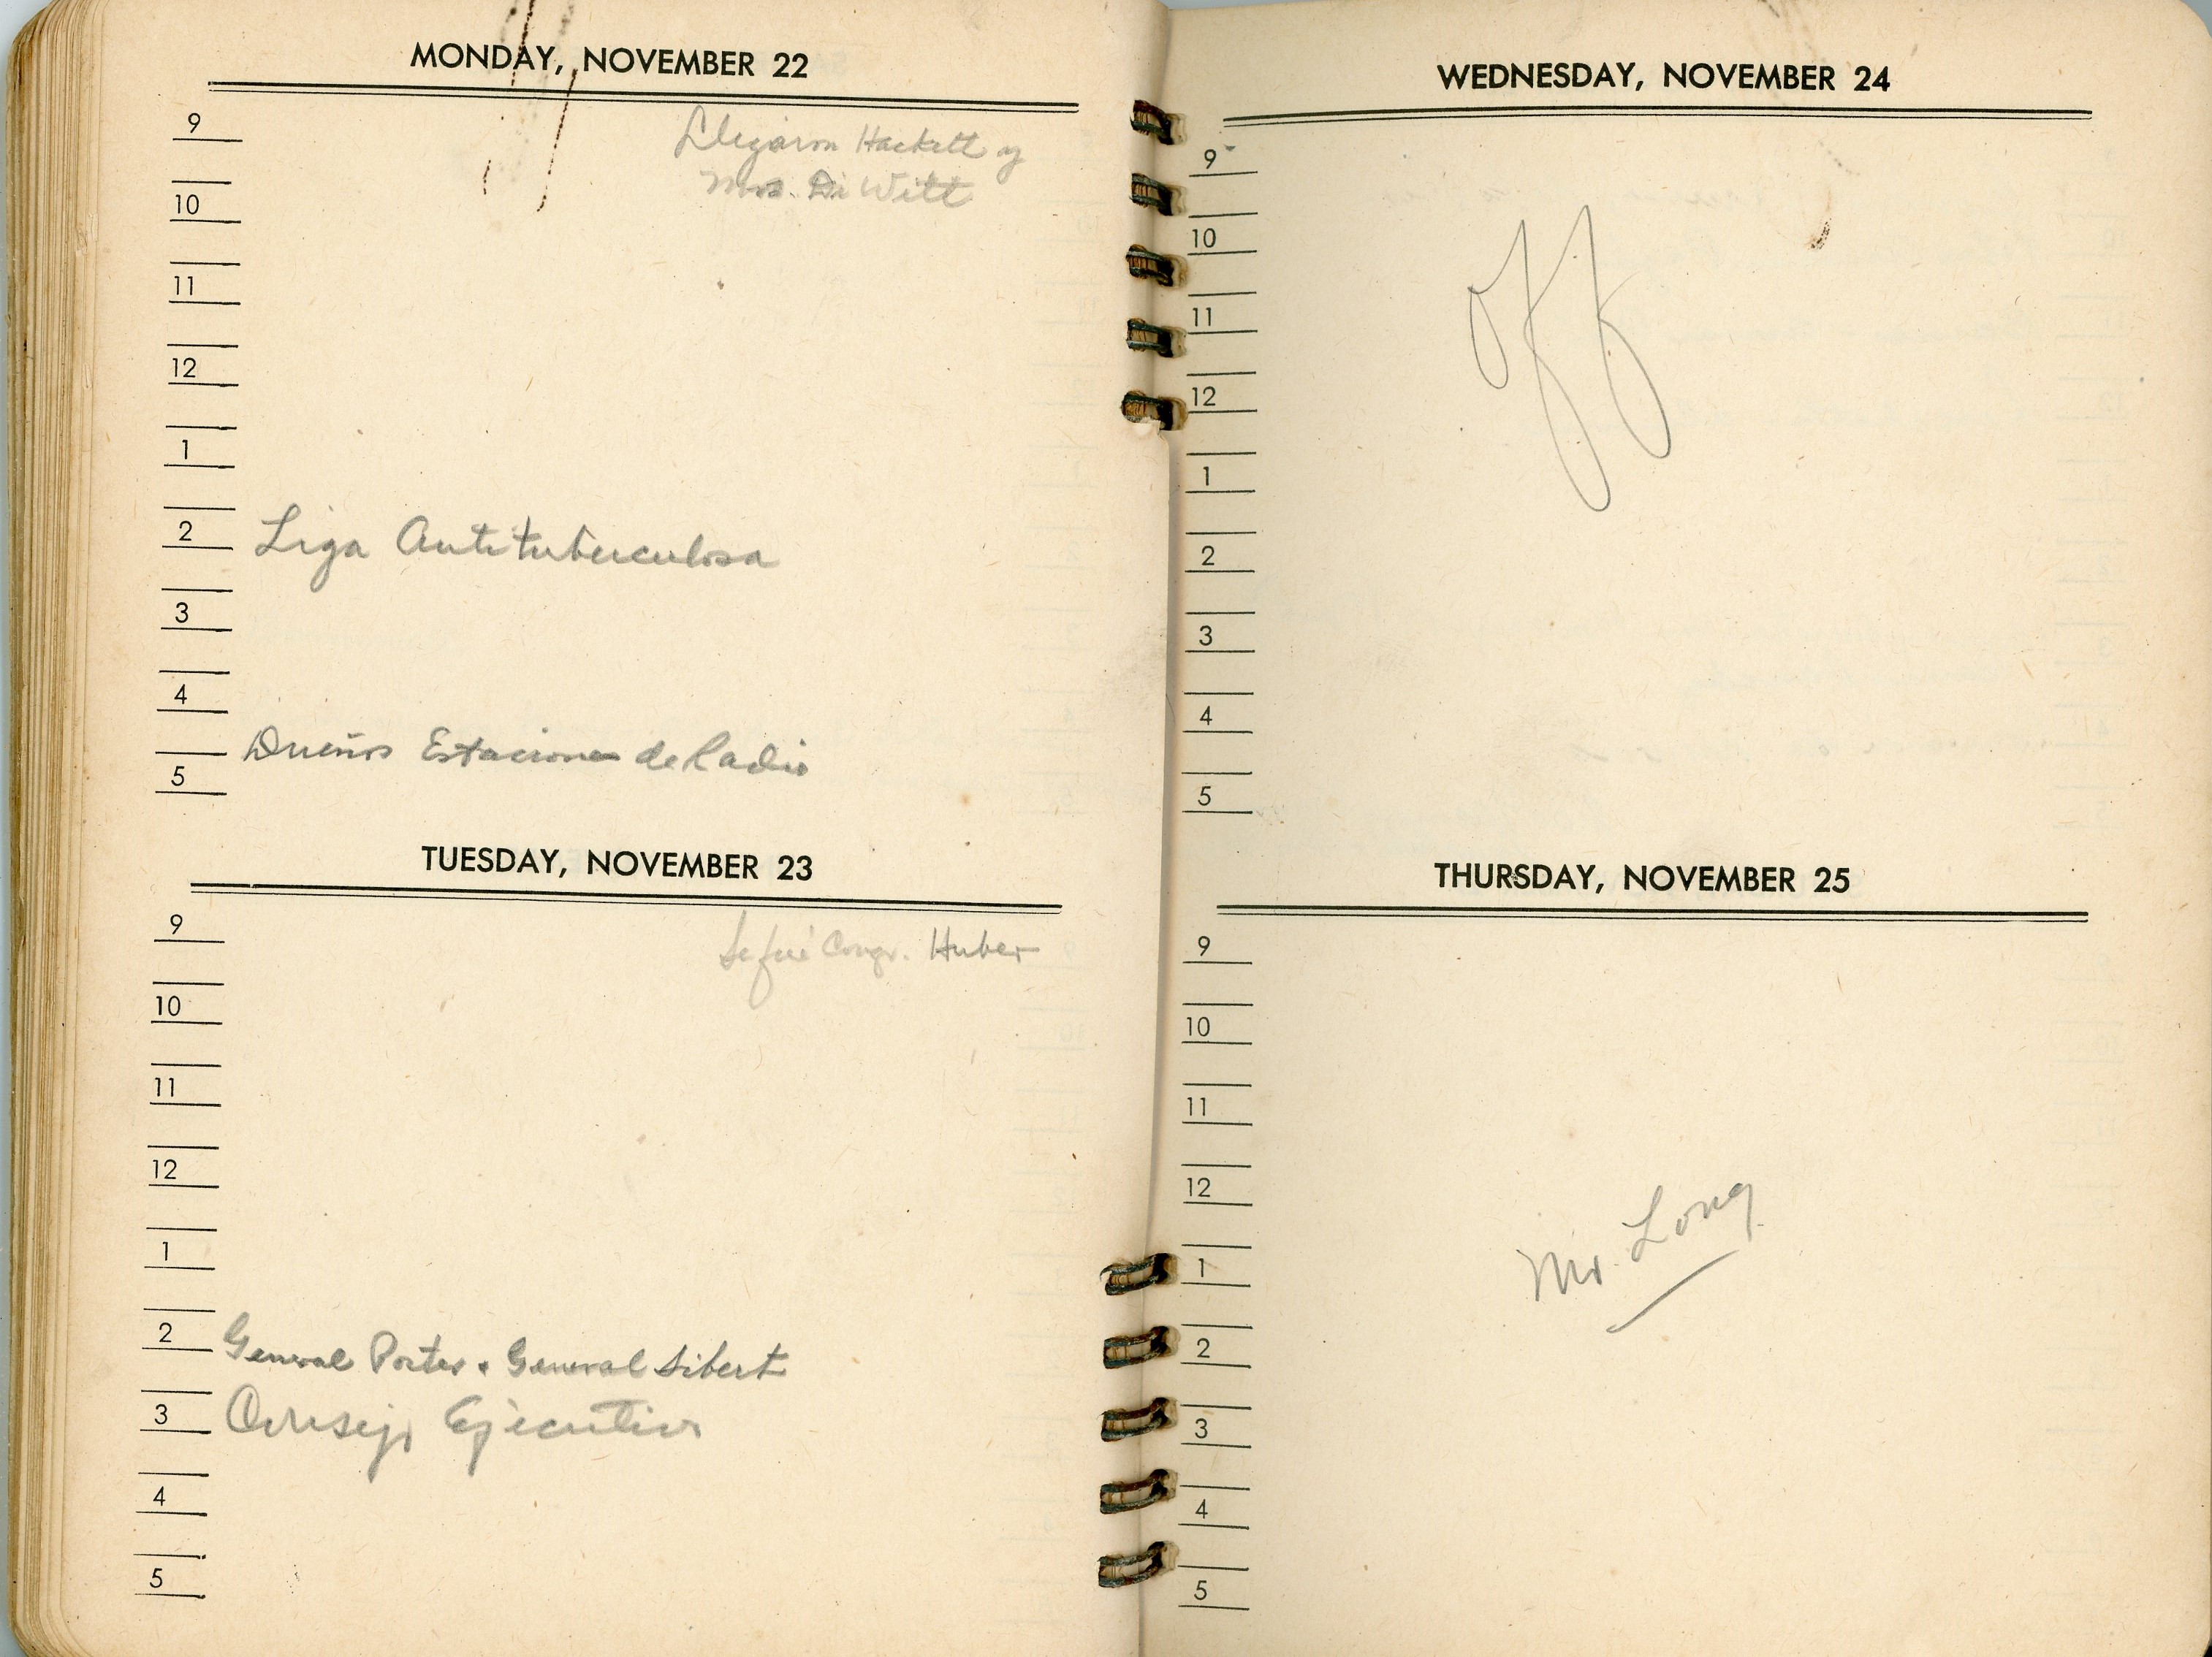 MONDAY, NOVEMBER 22
9
Llegaron Hackett y
Mrs. De Witt
10
11
12
1
2 Liga Antituberculosa
3
4
Dueños Estaciones de Radio
5
TUESDAY, NOVEMBER 23
9
Se fué Congr. Huber
10
11
12
1
2 General Porter + General Sibert
3 Consejo Ejecutivo
4
5
WEDNESDAY, NOVEMBER 24
9
10
off
11
12
1
2
3
4
5
THURSDAY, NOVEMBER 25
9
10
11
12
Mr. Long
1
2
3
4
5